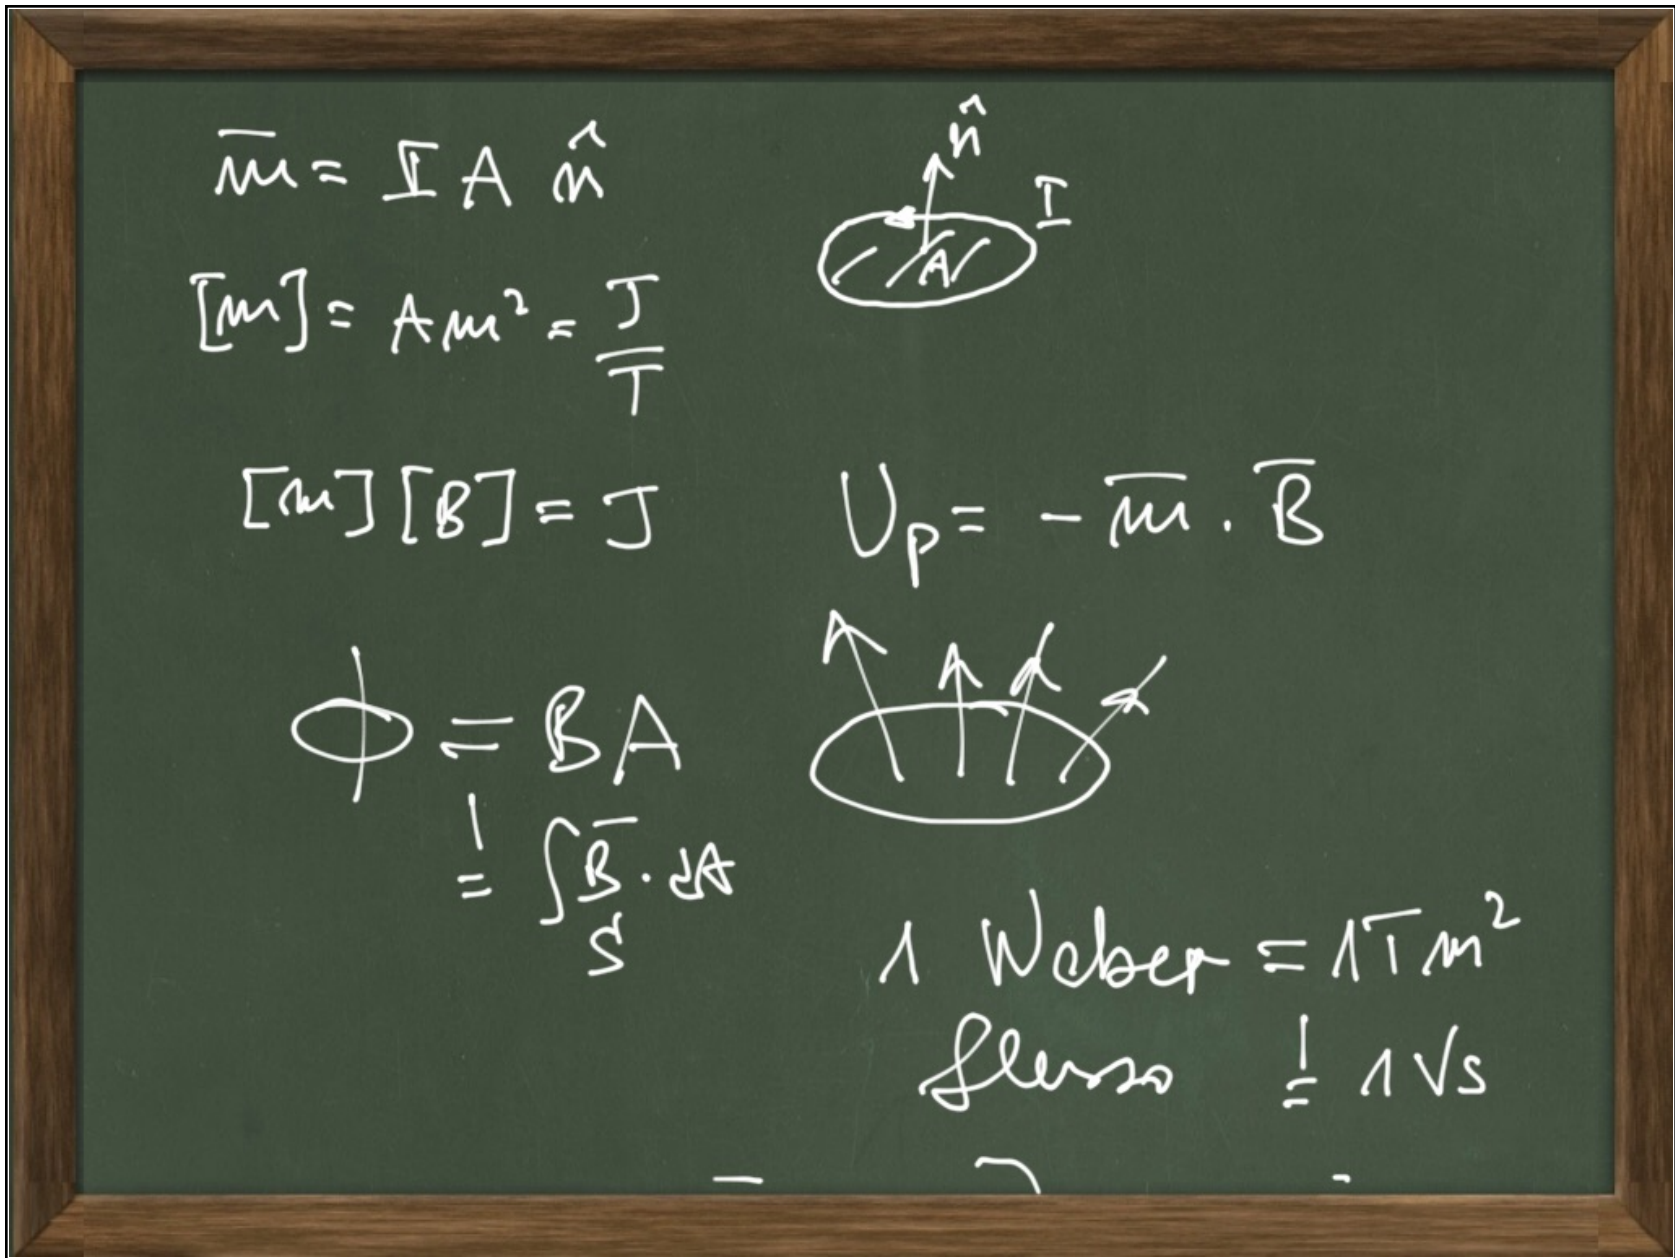 m̄ = I A n̂
n̂
I
A
[m] = Am² = J/T
[m][B] = J
U_p = - m̄ · B̄
ϕ = BA
= ∫_S B̄ · dA
1 Weber = 1Tm²
flusso = 1Vs